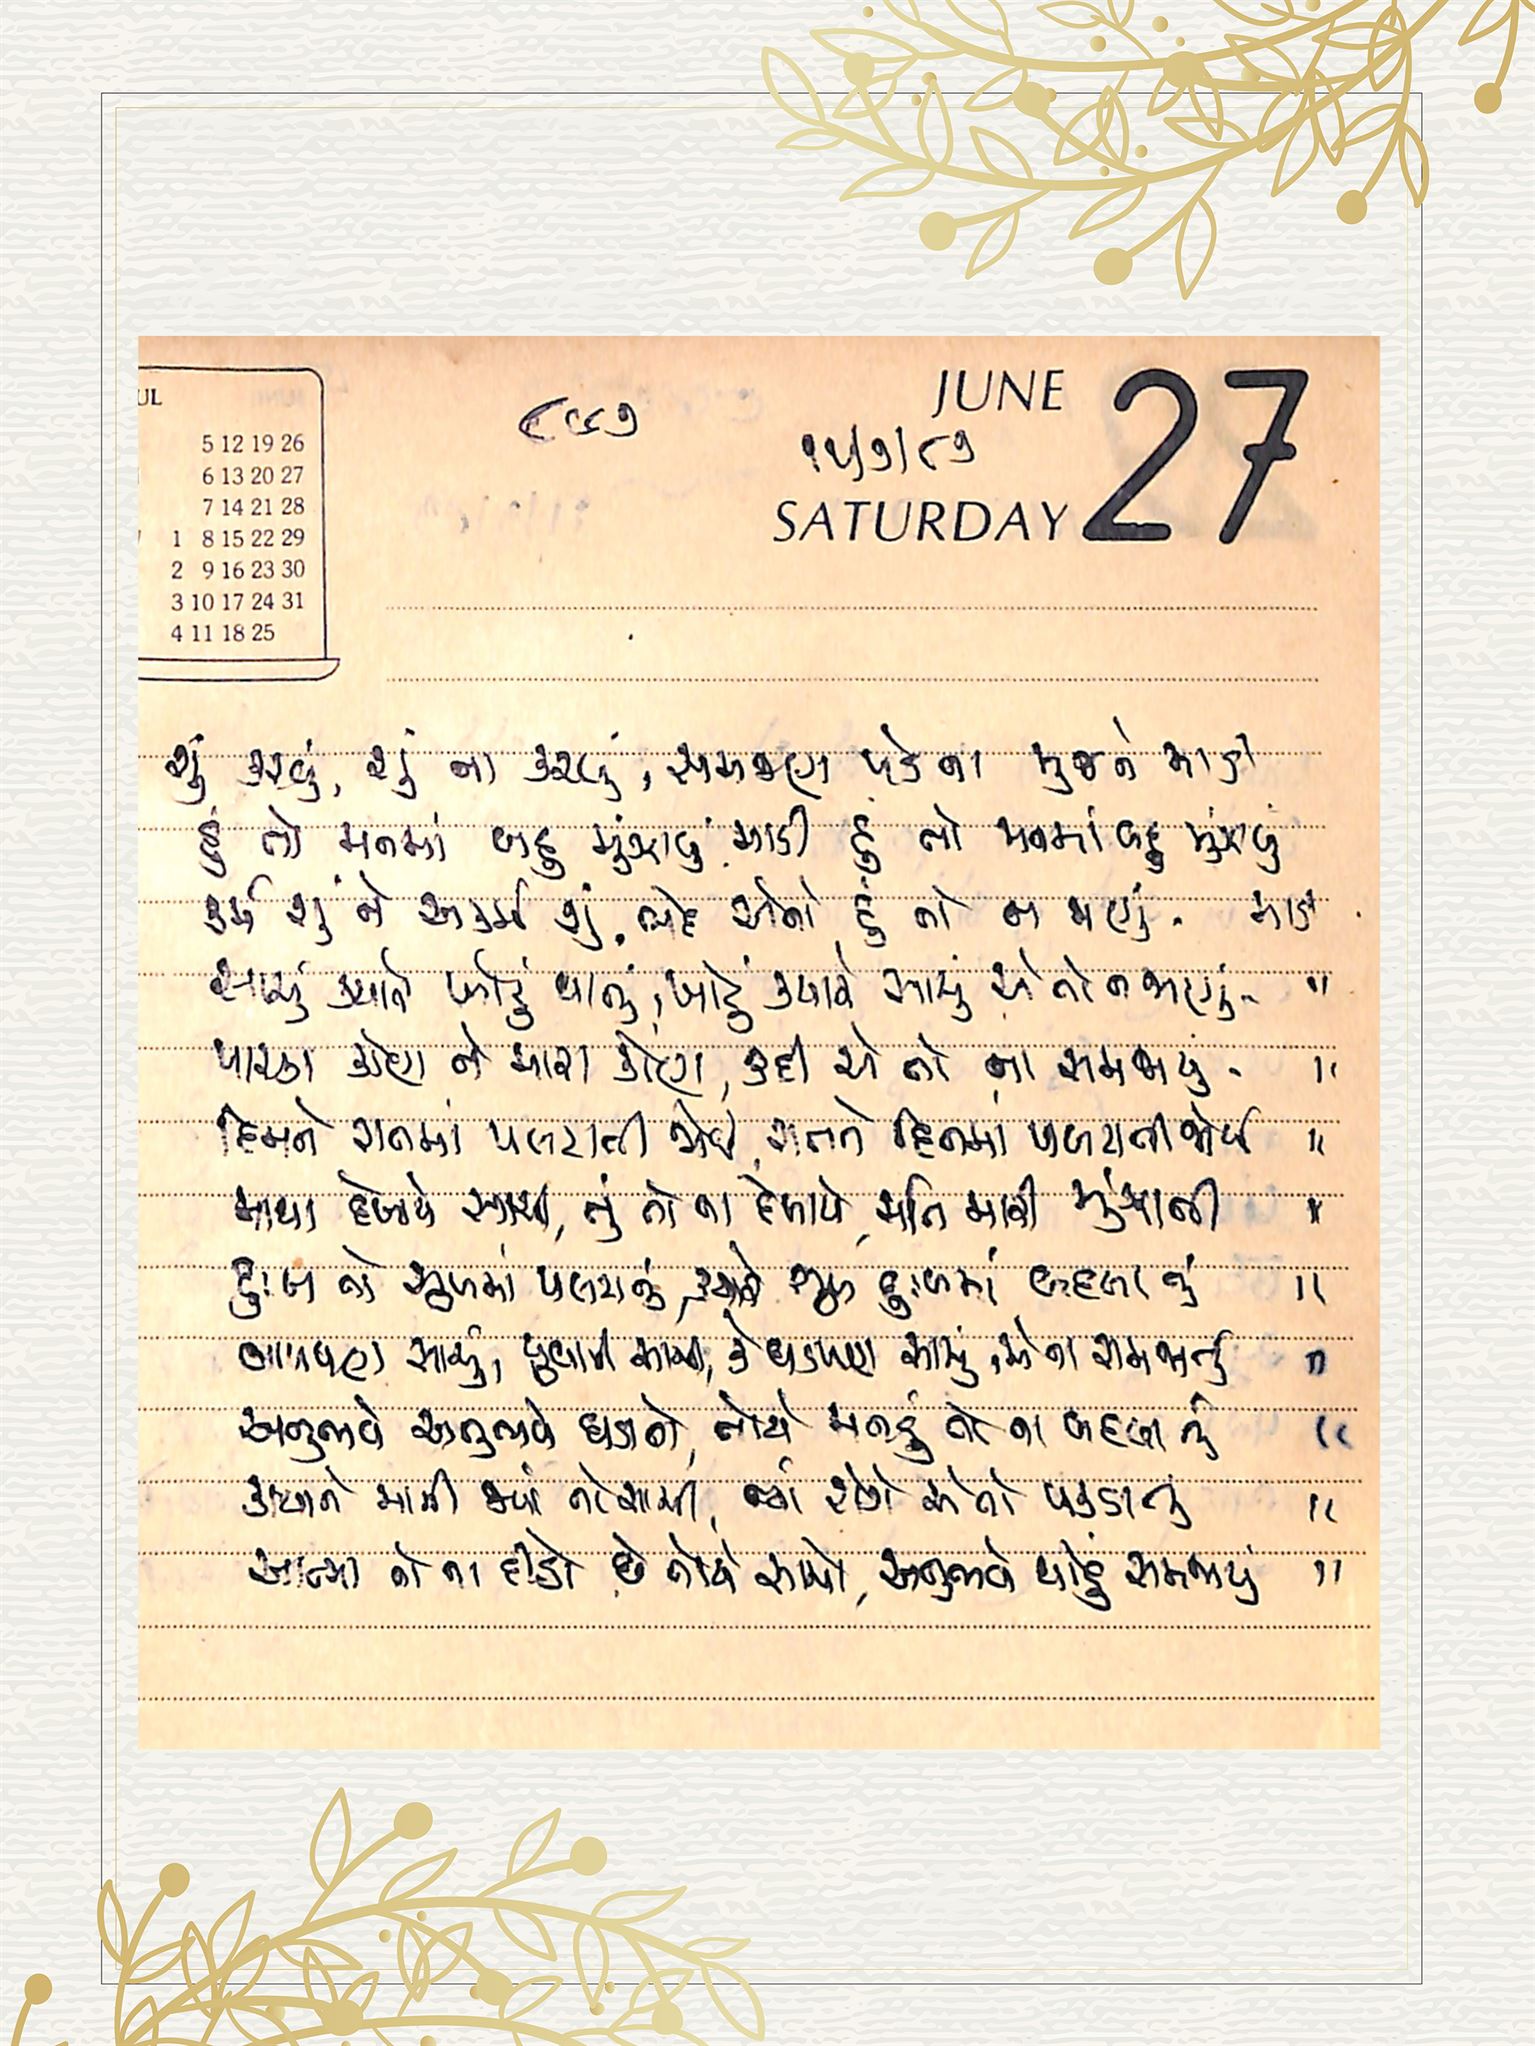 UL
5 12 19 26
6 13 20 27
7 14 21 28
1 8 15 22 29
2 9 16 23 30
3 10 17 24 31
4 11 18 25
JUNE 27
૧૫/૭/૮૭
SATURDAY
શું કરવું, શું ના કરવું, સમજણ પડે ના મુજને માડી
હું તો મનમાં બહુ મુંઝાવું માડી હું તો મનમાં બહુ મુંઝાવું
કર્મ શું ને અકર્મ શું, ભેદ એનો હું તો ન જાણું - માડી
સાચું ક્યારે ખોટું થાતું, ખોટું ક્યારે સાચું એ તો ન જાણું - "
પારકા કોણ ને મારા કોણ, કદી એ તો ના સમજાયું - "
દિનને રાતમાં પલટાતી જોઈ, રાતને દિનમાં પલટાતી જોઈ "
માયા દેખાયે સાચી, તું તો ના દેખાયે, મતિ મારી મુંઝાતી "
દુઃખ તો સુખમાં પલટાતું, ક્યારે સુખ દુઃખમાં બદલાતું "
બાળપણ સાચું, યુવાની સાચી, કે ઘડપણ સાચું, એ ના સમજાતું "
અનુભવે અનુભવે ઘડાતો, તોયે મનડું તો ના બદલાતું "
આત્મા તો ના દીઠો છે તોયે સાચો, અનુભવે થોડું સમજાયું "